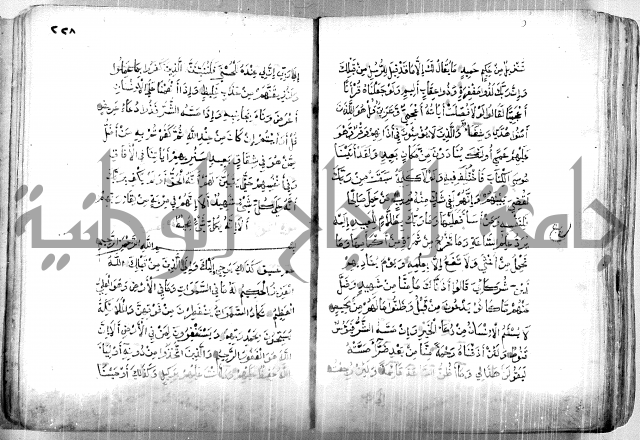 تنزيل من حكيم حميد ما يقال لك الا ما قد قيل للرسل من قبلك
ان ربك لذو مغفرة وذو عقاب اليم ولو جعلناه قرآنا
اعجميا لقالوا لولا فصلت آياته اعجمي وعربي قل هو للذين
آمنوا هدى وشفاء والذين لا يؤمنون في آذانهم وقر وهو
عليهم عمى اولئك ينادون من مكان بعيد ولقد آتينا
موسى الكتاب فاختلف فيه ولولا كلمة سبقت من ربك
لقضي بينهم وانهم لفي شك منه مريب من عمل صالحا
فلنفسه ومن اساء فعليها وما ربك بظلام للعبيد اليه
يرد علم الساعة وما تخرج من ثمرات من اكمامها وما
تحمل من انثى ولا تضع الا بعلمه ويوم يناديهم
اين شركائي قالوا آذناك ما منا من شهيد وضل
عنهم ما كانوا يدعون من قبل وظنوا ما لهم من محيص
لا يسئم الانسان من دعاء الخير وان مسه الشر فيئوس
قنوط ولئن اذقناه رحمة منا من بعد ضراء مسته
ليقولن هذا لي وما اظن الساعة قائمة ولئن رجعت
٢٢٨
الى ربي ان لي عنده للحسنى فلننبئن الذين كفروا بما عملوا
ولنذيقنهم من عذاب غليظ واذا انعمنا على الانسان
اعرض ونأى بجانبه واذا مسه الشر فذو دعاء عريض
قل ارأيتم ان كان من عند الله ثم كفرتم به من اضل
ممن هو في شقاق بعيد سنريهم آياتنا في الآفاق
وفي انفسهم حتى يتبين لهم انه الحق اولم يكف بربك
انه على كل شيء شهيد الا انهم في مرية من لقاء ربهم
الا انه بكل شيء محيط
بسم الله الرحمن الرحيم
حم عسق كذلك يوحي اليك والى الذين من قبلك الله
العزيز الحكيم له ما في السموات وما في الارض وهو العلي
العظيم تكاد السموات يتفطرن من فوقهن والملائكة
يسبحون بحمد ربهم ويستغفرون لمن في الارض الا ان
الله هو الغفور الرحيم والذين اتخذوا من دونه اولياء
الله حفيظ عليهم وما انت عليهم بوكيل وكذلك اوحينا
جامعة النجاح الوطنية